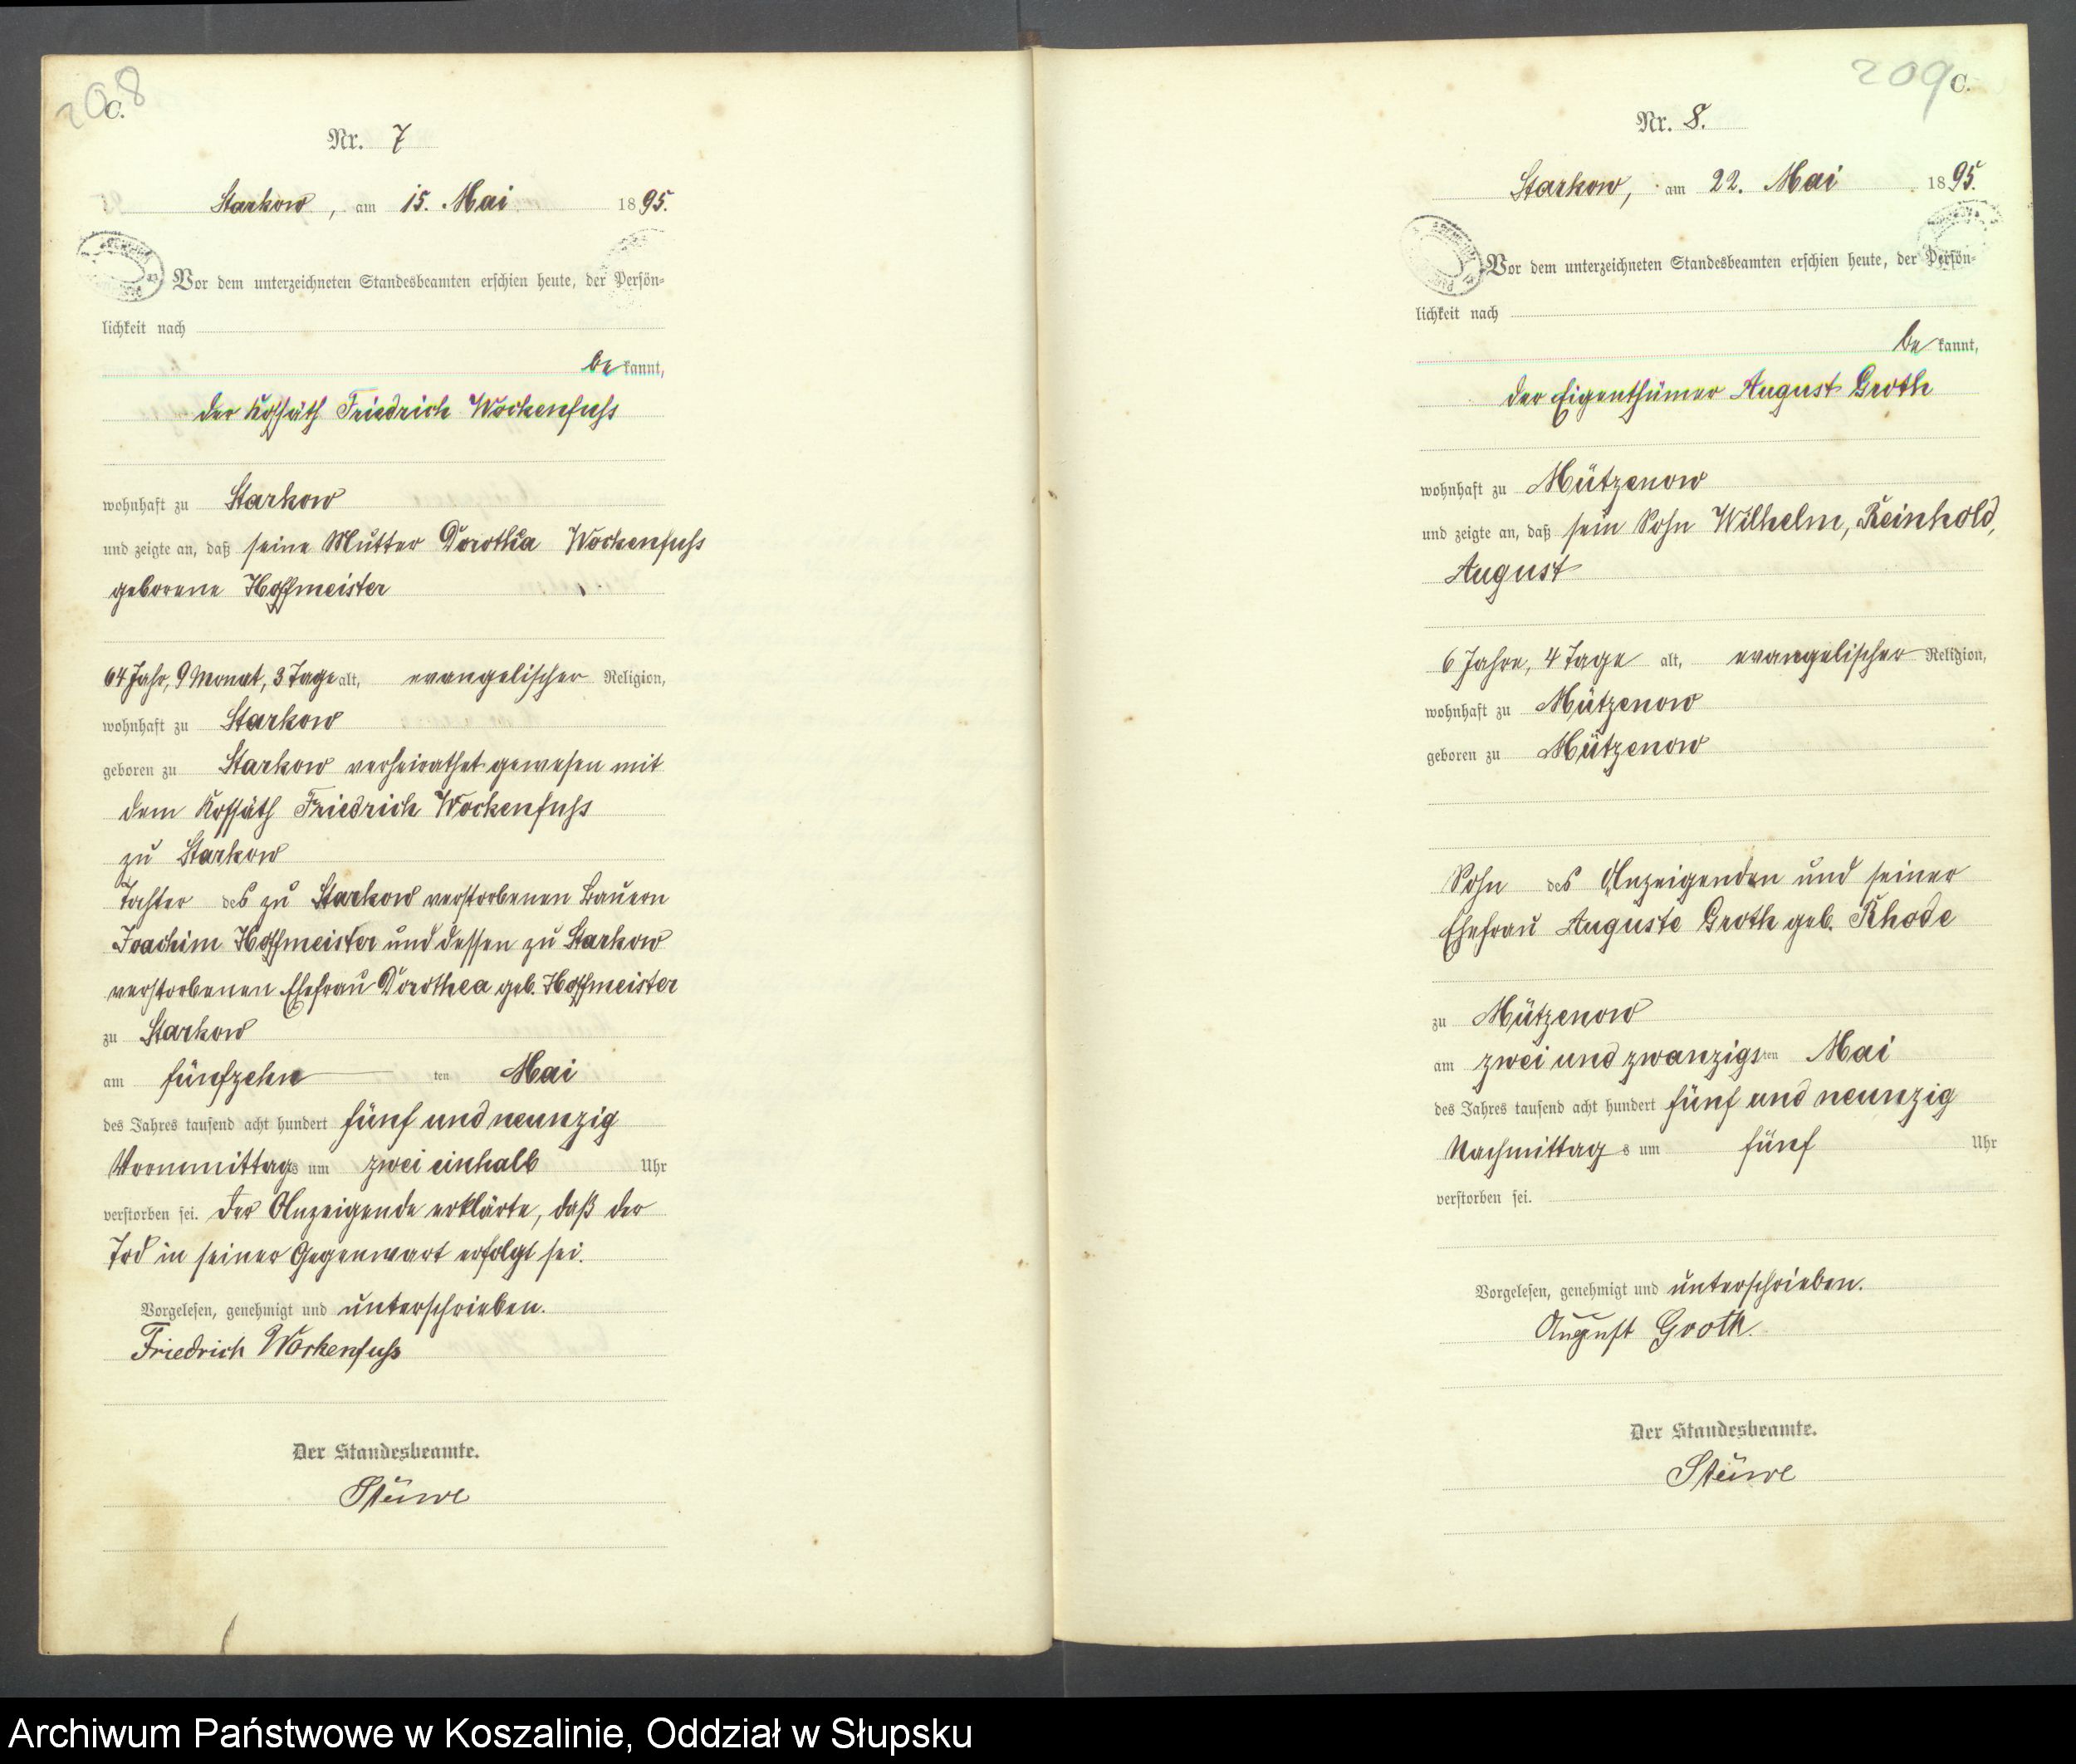 208
C.
Nr. 7
Starkow, am 15. Mai 1895.
Vor dem unterzeichneten Standesbeamten erschien heute, der Persön-
lichkeit nach
bekannt,
der Kossäth Friedrich Wockenfuss
wohnhaft zu Starkow
und zeigte an, daß seine Mutter Dorothea Wockenfuss
geborene Hoffmeister
64 Jahr, 9 Monat, 3 Tage alt, evangelischer Religion,
wohnhaft zu Starkow
geboren zu Starkow verheirathet gewesen mit
dem Kossäth Friedrich Wockenfuss
zu Starkow
Tochter des zu Starkow verstorbenen Bauern
Joachim Hoffmeister und dessen zu Starkow
verstorbenen Ehefrau Dorothea geb. Hoffmeister
zu Starkow
am fünfzehn ten Mai
des Jahres tausend acht hundert fünf und neunzig
Vormmittags um zwei einhalb Uhr
verstorben sei. Der Anzeigende erklärte, daß der
Tod in seiner Gegenwart erfolgt sei.
Vorgelesen, genehmigt und unterschrieben.
Friedrich Wockenfuss
Der Standesbeamte.
Stüwe
209
C.
Nr. 8.
Starkow, am 22. Mai 1895.
Vor dem unterzeichneten Standesbeamten erschien heute, der Persön-
lichkeit nach
bekannt,
der Eigenthümer August Groth
wohnhaft zu Mützenow
und zeigte an, daß sein Sohn Wilhelm, Reinhold,
August
6 Jahre, 4 Tage alt, evangelischer Religion,
wohnhaft zu Mützenow
geboren zu Mützenow
Sohn des Anzeigenden und seiner
Ehefrau Auguste Groth geb. Rhode
zu Mützenow
am zwei und zwanzigsten Mai
des Jahres tausend acht hundert fünf und neunzig
Nachmittags um fünf Uhr
verstorben sei.
Vorgelesen, genehmigt und unterschrieben.
August Groth.
Der Standesbeamte.
Stüwe
Archiwum Państwowe w Koszalinie, Oddział w Słupsku